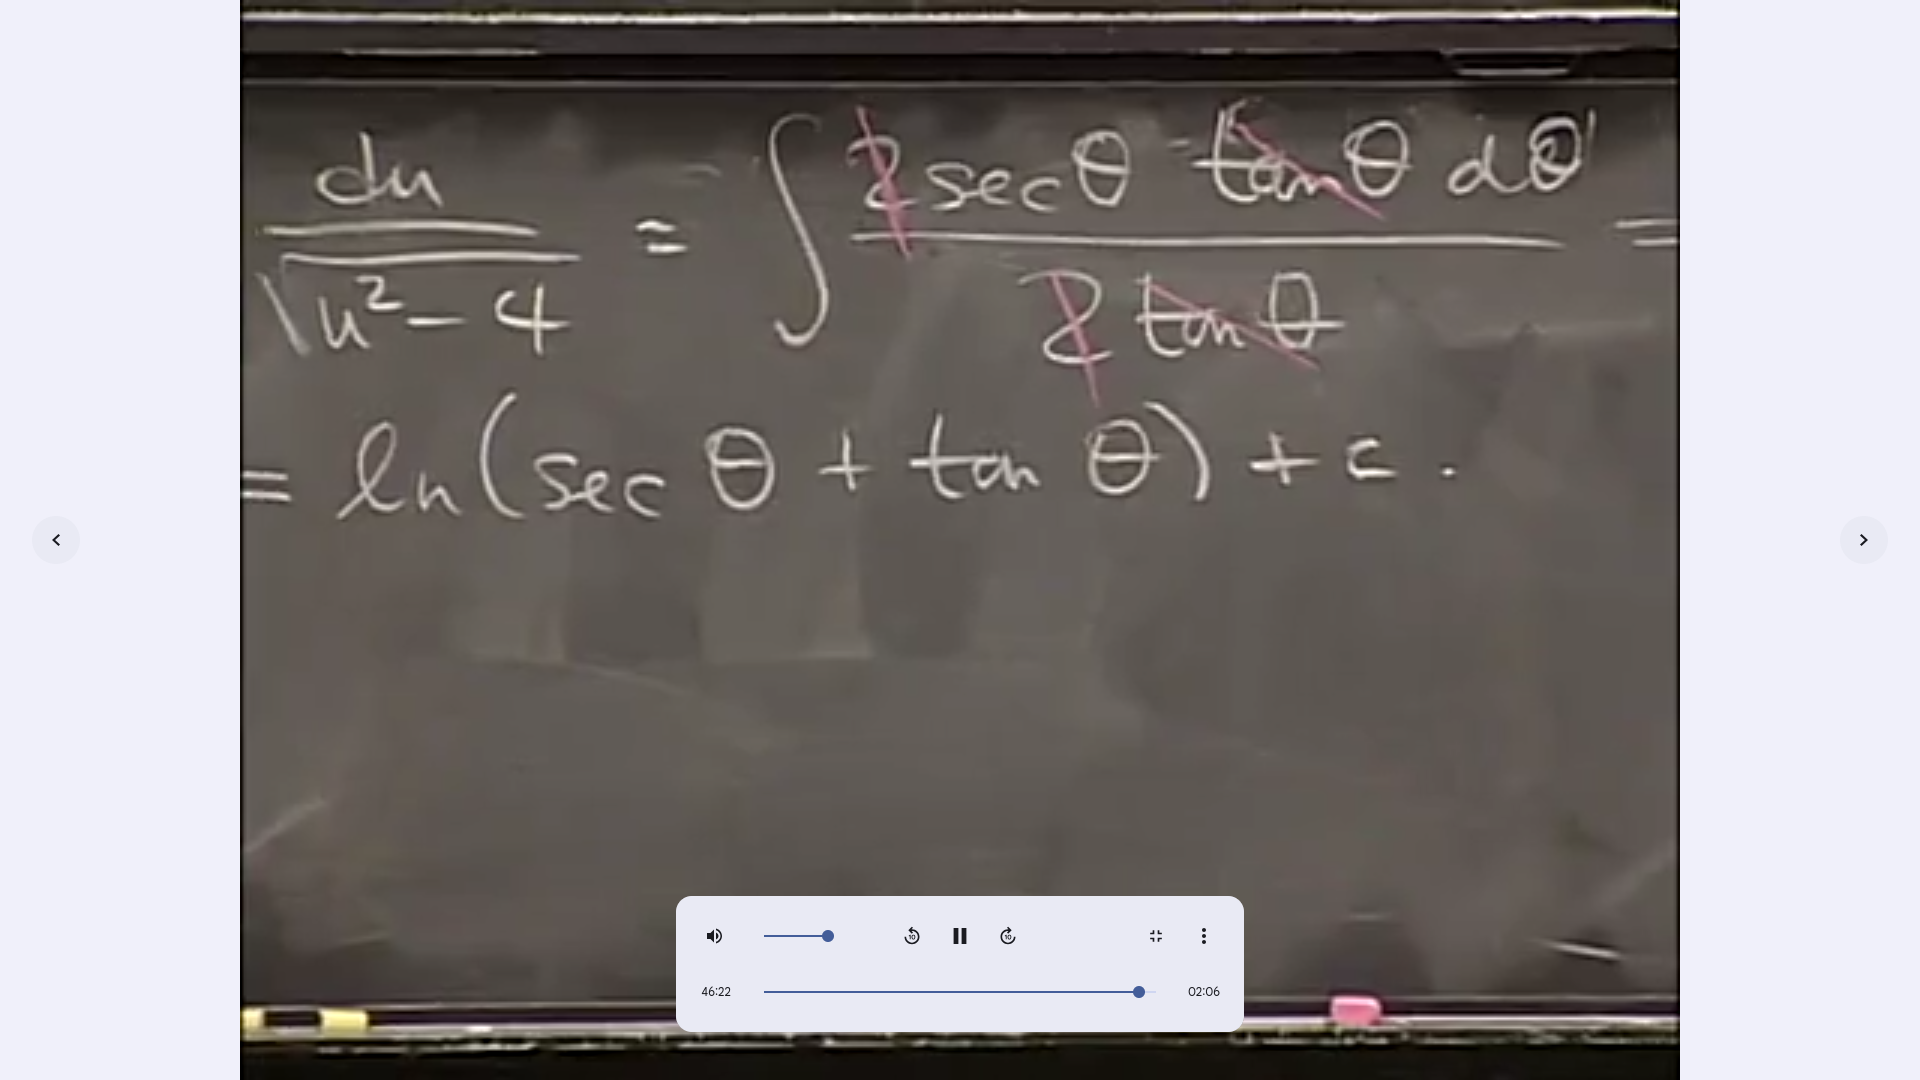 du/√u² - 4 = ∫ 2 sec θ tan θ dθ / 2 tan θ =
= ln(sec θ + tan θ) + c.
10 10
46:22 02:06